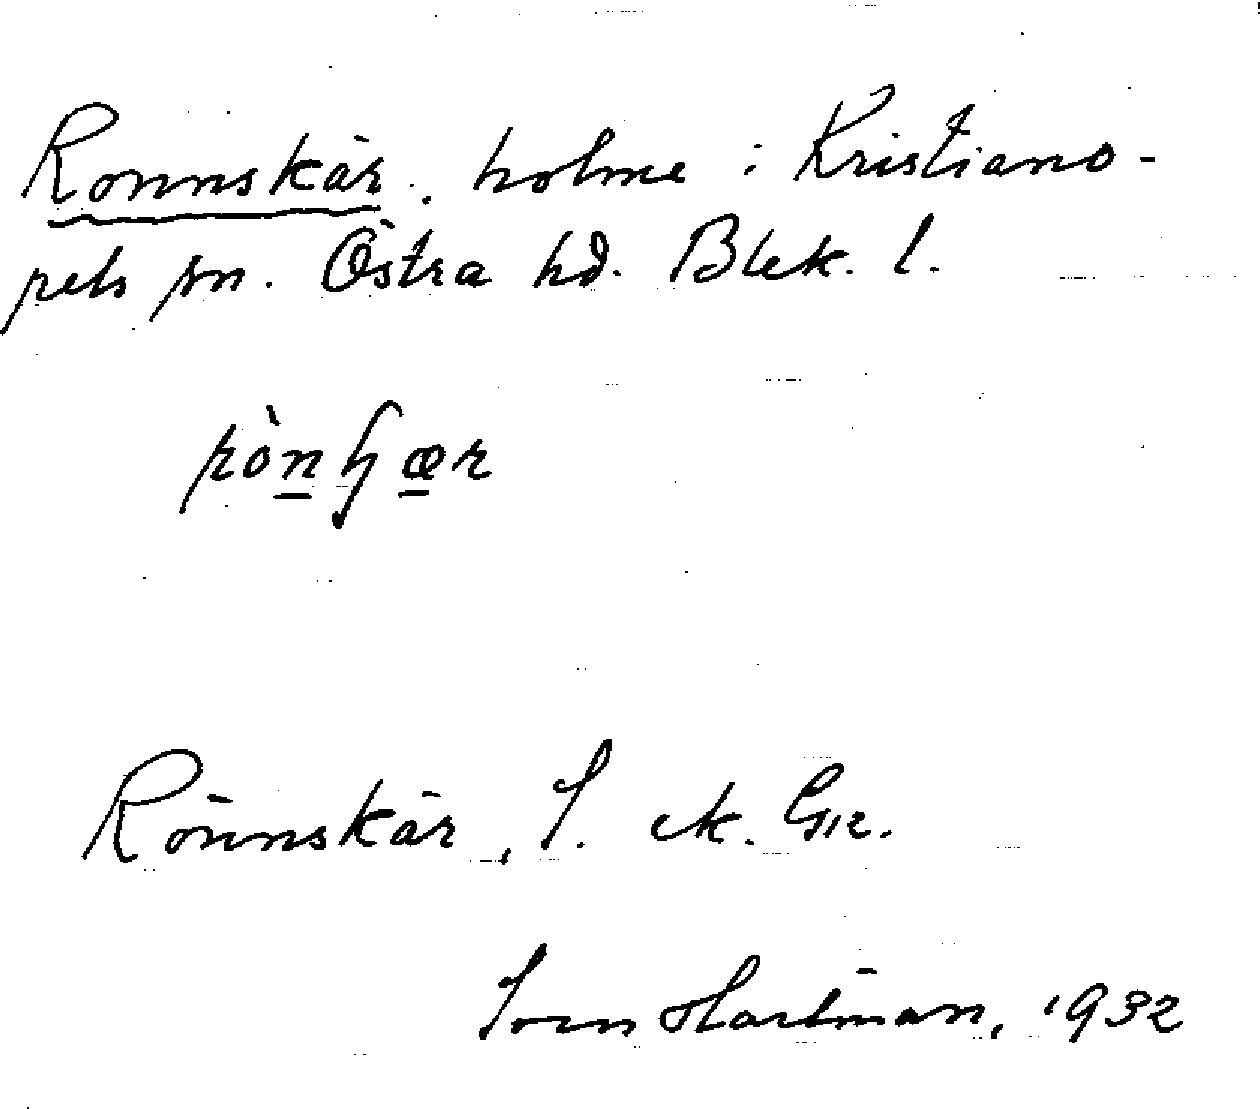 Rönnskär. holme i Kristiano-
pels sn. Östra hd. Blek. l.
Rönnskär, S. ek. Gir.
Sven Hartman, 1932